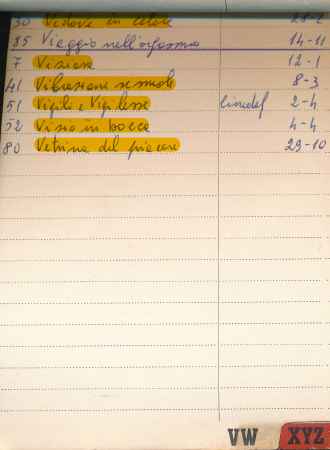 30 Vedova in calore 28-2
85 Viaggio nell'orgasmo 14-11
7 Viziosa 12-1
41 Vibrazione sensuale 8-3
51 Vigili e Vigilesse 2-4
52 Vizio in bocca 4-4
80 Vetrina del piacere 29-10
VW XYZ